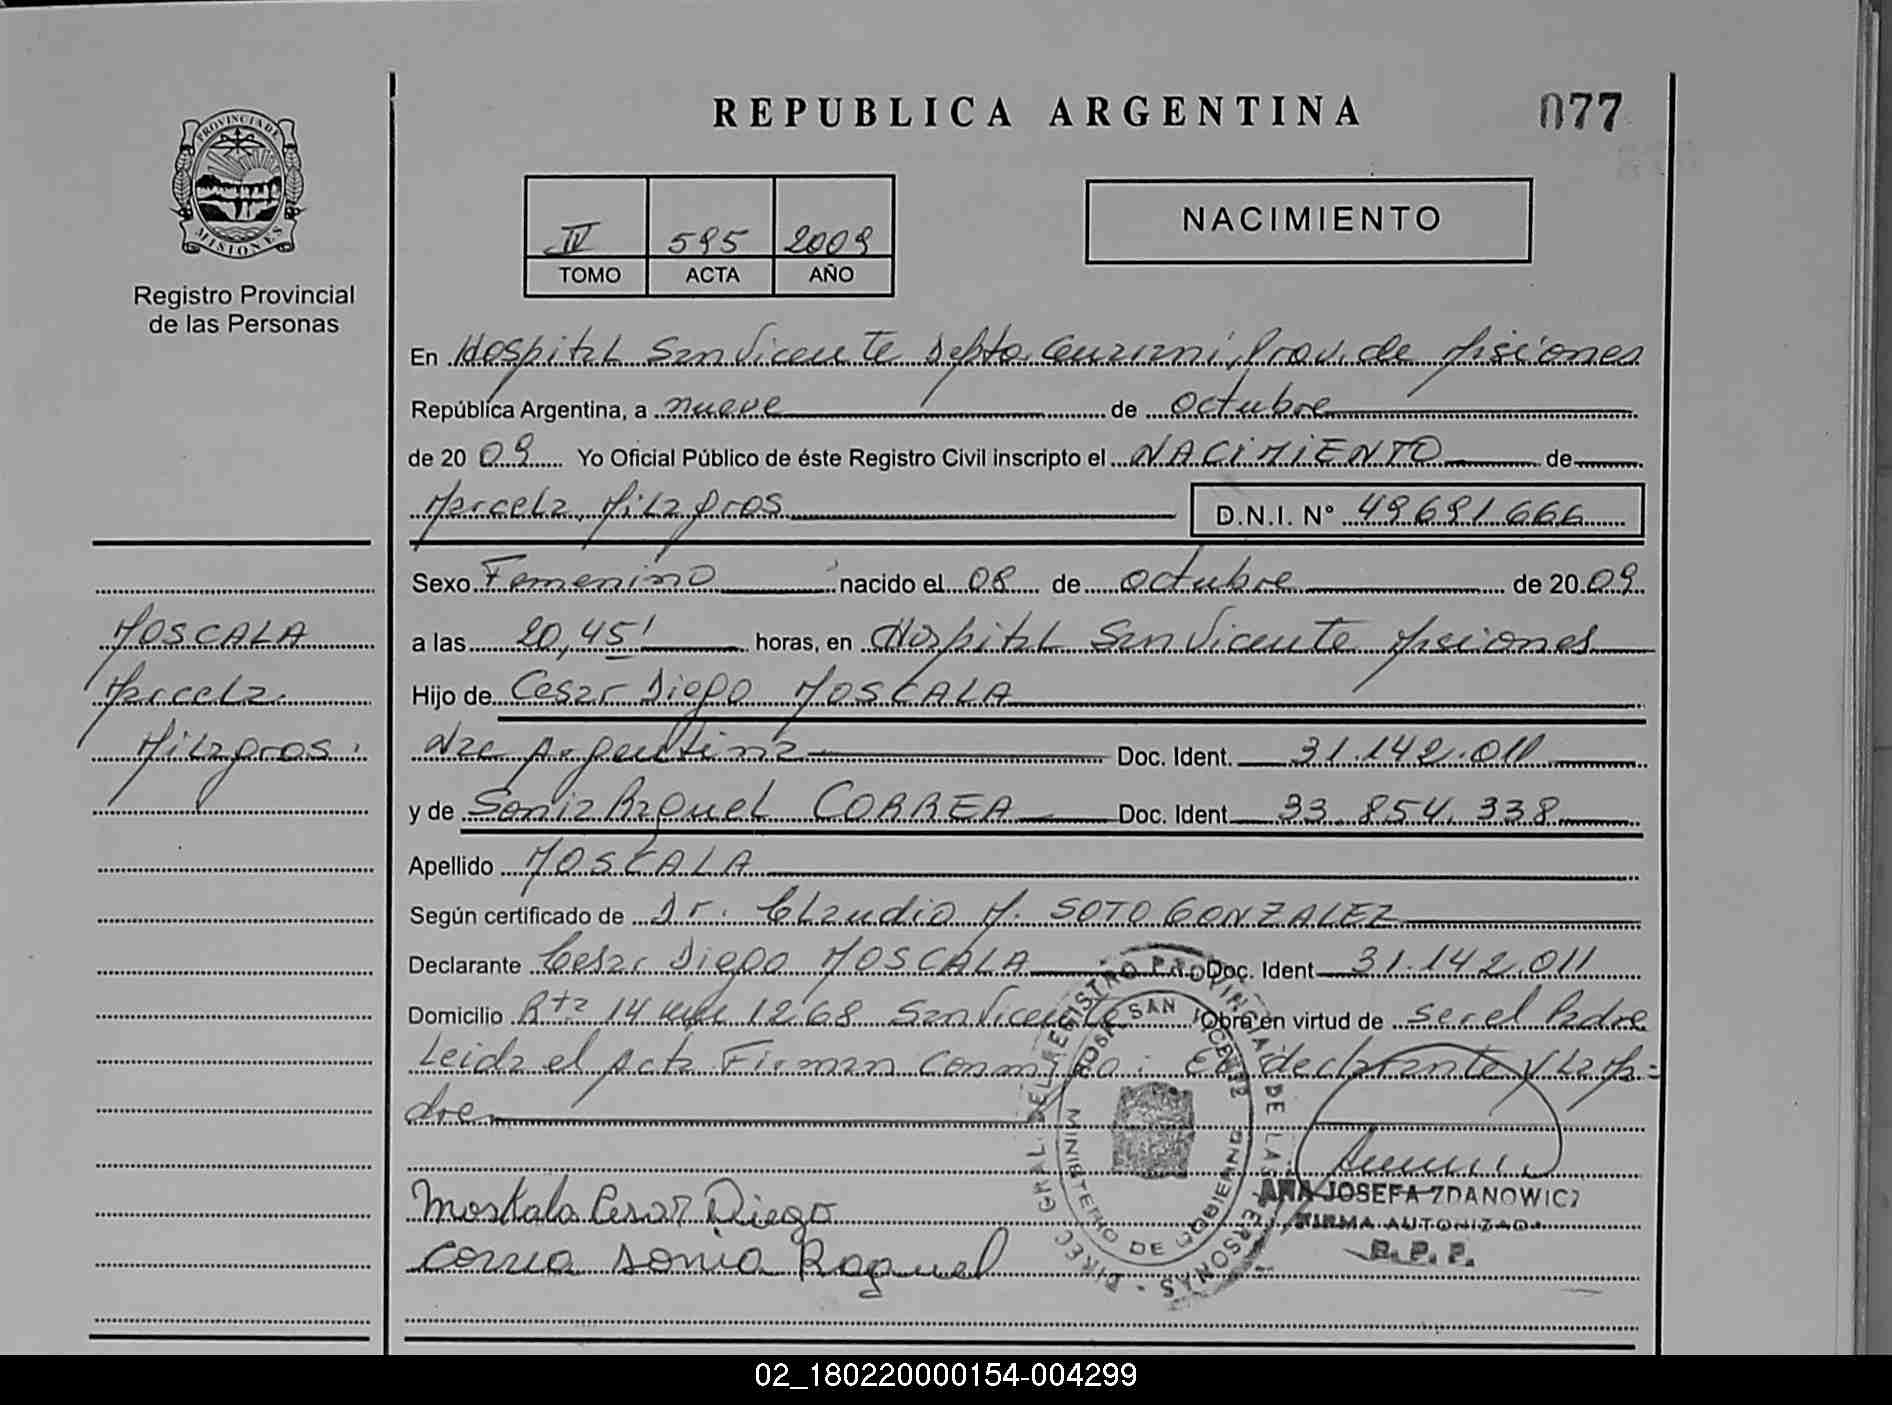 REPUBLICA ARGENTINA
077
PROVINCIA DE
MISIONES
Registro Provincial
de las Personas
IV 595 2009
TOMO ACTA AÑO
NACIMIENTO
En Hospital San Vicente Depto. Guaraní, Prov. de Misiones
República Argentina, a nueve de octubre
de 20 09 Yo Oficial Público de éste Registro Civil inscripto el NACIMIENTO de
Marcela, Milagros D.N.I. Nº 49691666
Sexo Femenino nacido el 08 de octubre de 20 09
a las 20,45' horas, en Hospital San Vicente Misiones
Hijo de Cesar Diego MOSCALA
Nac Argentina Doc. Ident. 31.142.011
y de Sonia Raquel CORREA Doc. Ident 33.854.338
Apellido MOSCALA
Según certificado de Dr. Claudio M. SOTO GONZALEZ
Declarante Cesar Diego MOSCALA Doc. Ident 31.142.011
Domicilio Rta 14 km 1268 San Vicente Obra en virtud de ser el Padre
Leida el Acta Firman Conmigo: El declarante y La Ma=
dre
MOSCALA
Marcela
Milagros.
Moskala Cesar Diego
Correa Sonia Raquel
DIREC. GRAL. DEL REGISTRO PROVINCIAL DE LAS PERSONAS
SAN VICENTE
MINISTERIO DE GOBIERNO
ANA JOSEFA ZDANOWICZ
FIRMA AUTORIZADA
R. P. P.
02_180220000154-004299